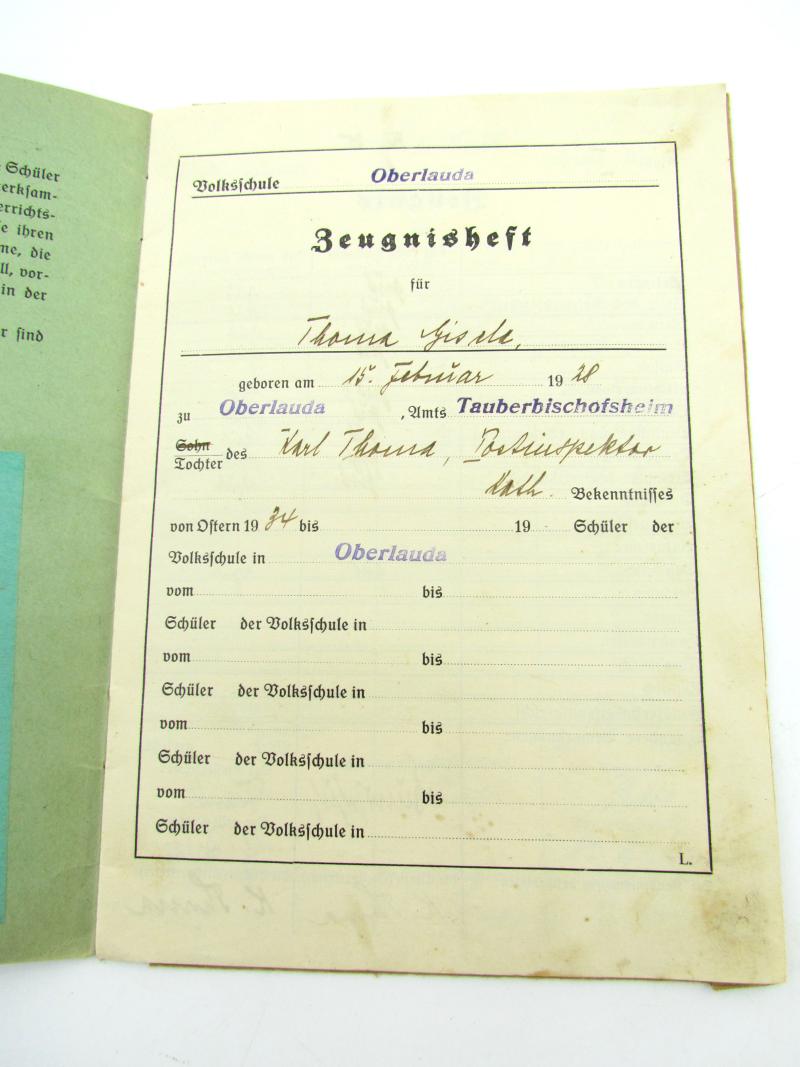 Schüler
erksam-
errichts-
e ihren
me, die
ll, vor-
in der
r sind
Volksschule Oberlauda
Zeugnisheft
für
Thoma Gisela,
geboren am 15. Februar 1928
zu Oberlauda, Amts Tauberbischofsheim
Sohn
Tochter des Karl Thoma, Postinspektor
Kath. Bekenntnisses
von Ostern 1934 bis 19 Schüler der
Volksschule in Oberlauda
vom bis
Schüler der Volksschule in
vom bis
Schüler der Volksschule in
vom bis
Schüler der Volksschule in
vom bis
Schüler der Volksschule in
L.